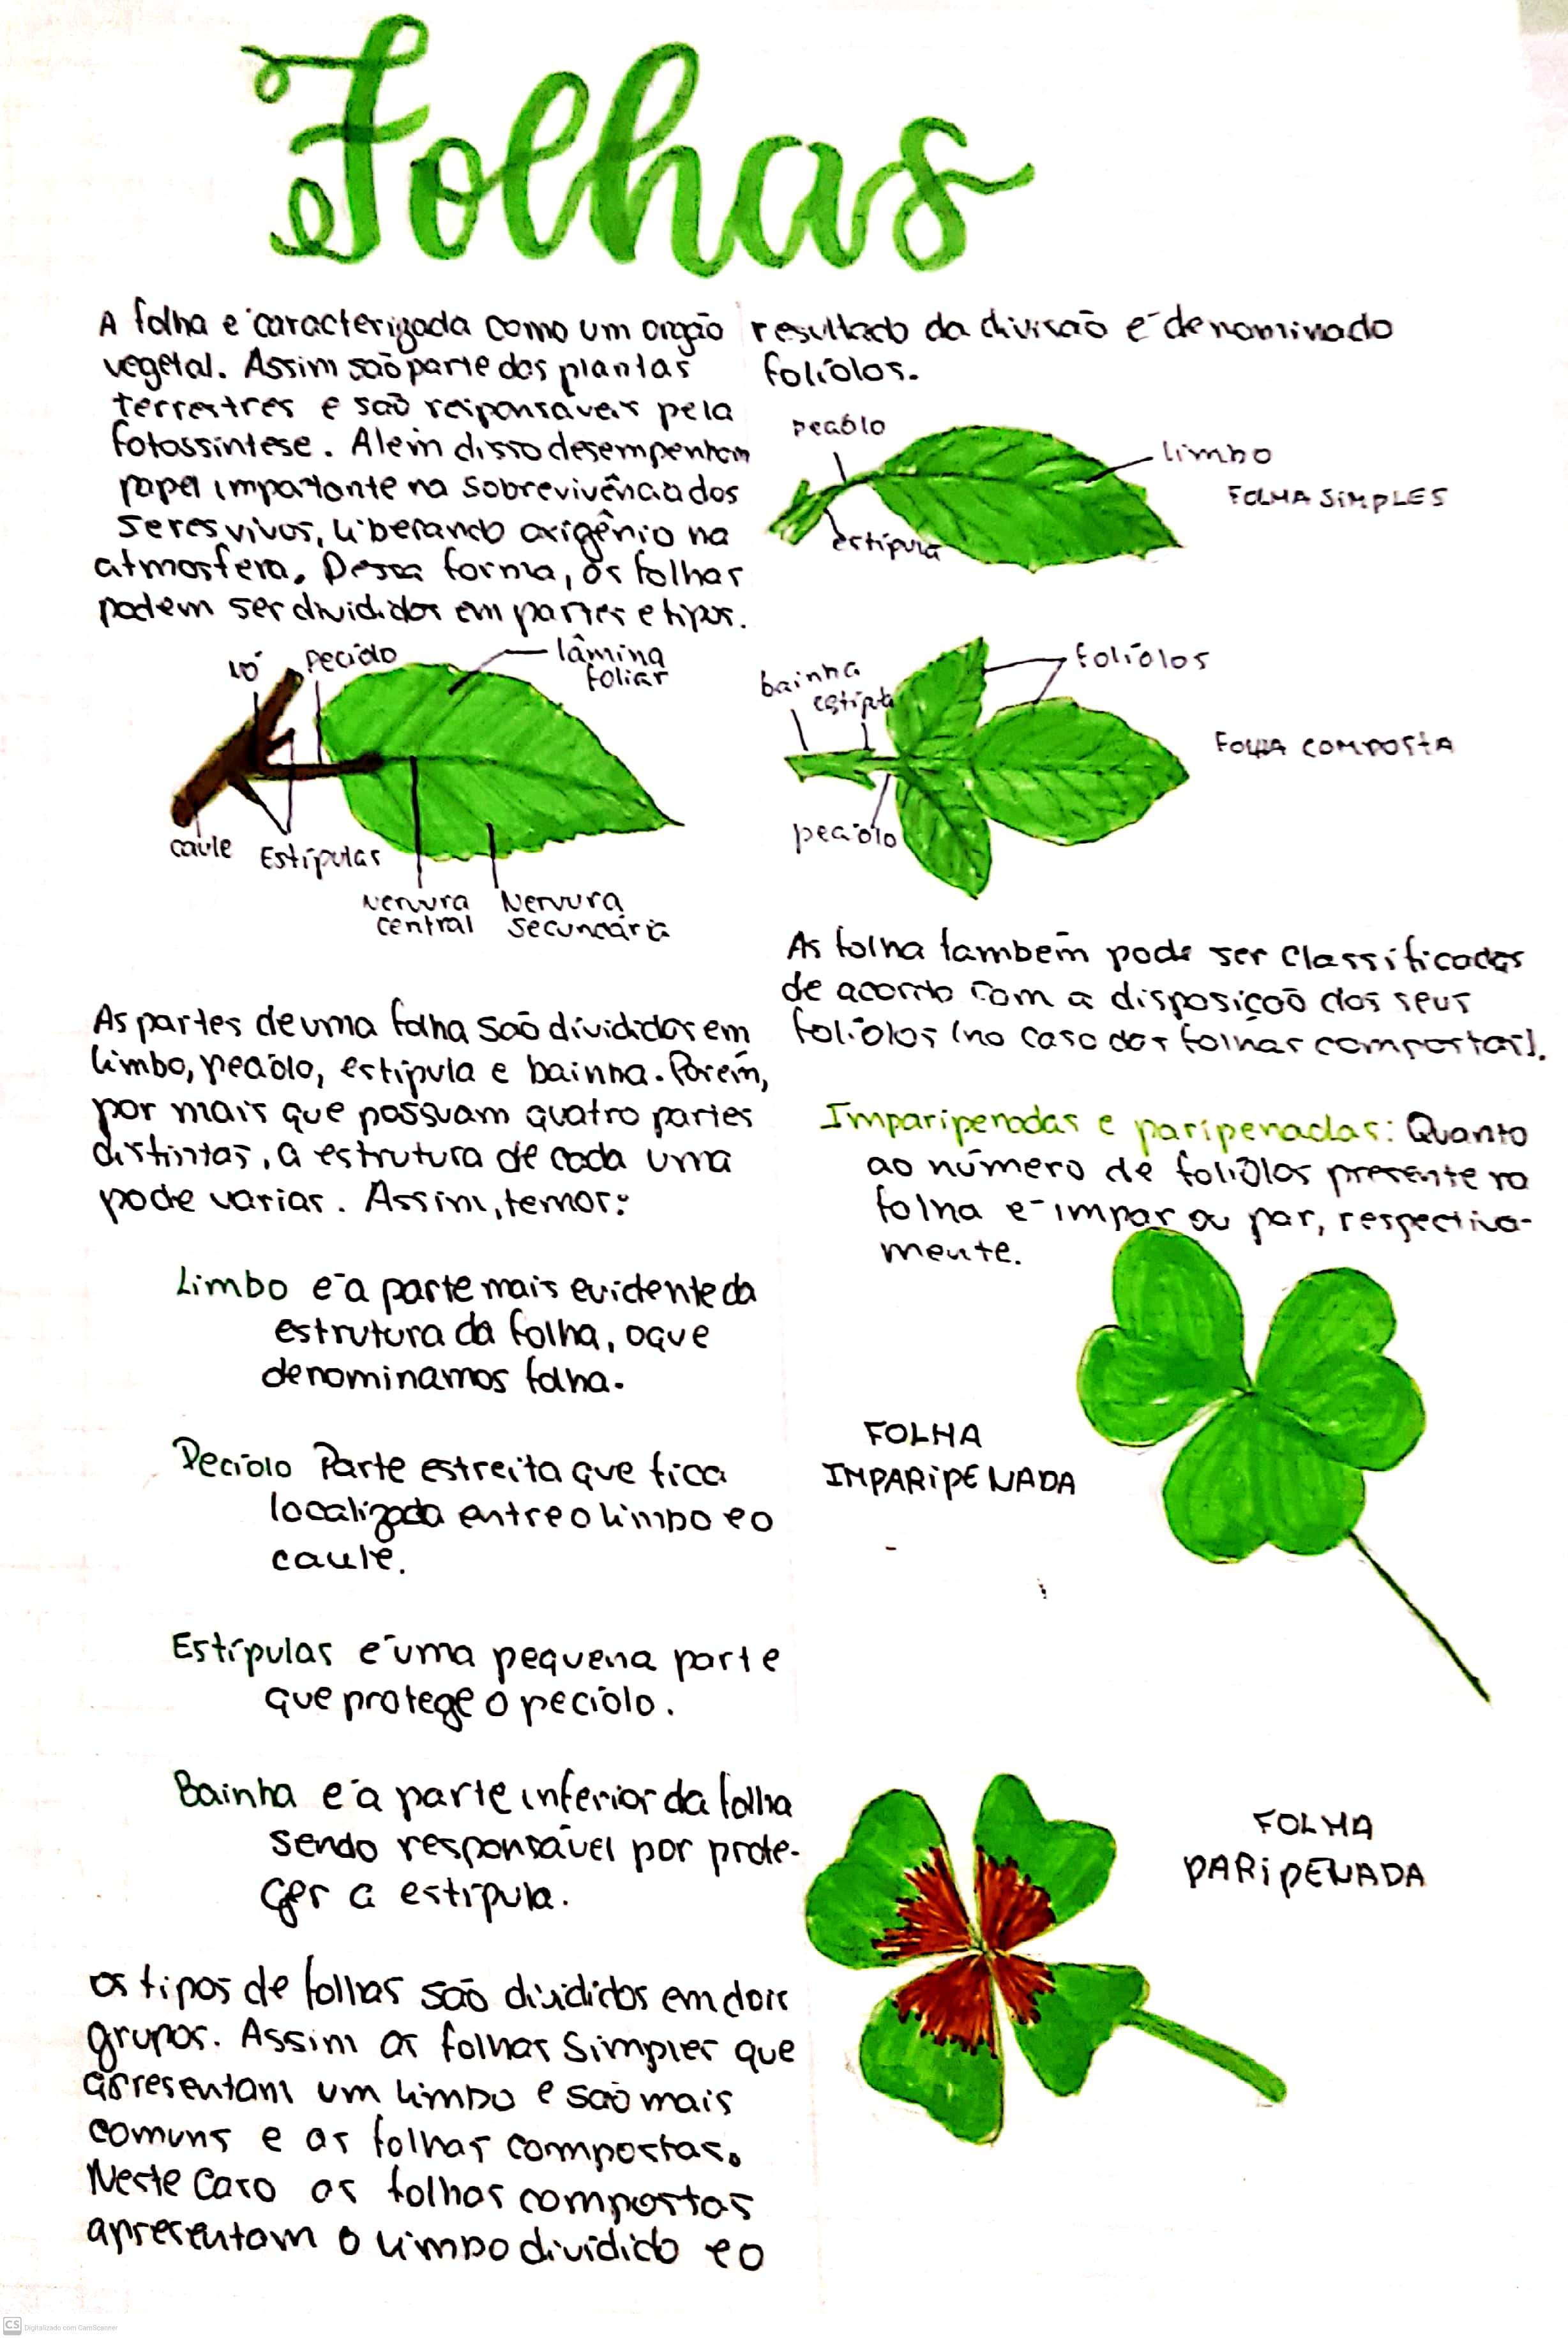 Folhas
A folha é caracterizada como um orgão
vegetal. Assim são parte das plantas
terrestres e são responsáveis pela
fotossíntese. Além disso desempenham
papel importante na sobrevivência dos
seres vivos, liberando oxigênio na
atmosfera. Dessa forma, as folhas
podem ser divididas em partes e tipos.
nó
pecíolo
lâmina
foliar
caule
Estípulas
Nervura
central
Nervura
secundária
As partes de uma folha são divididas em
limbo, pecíolo, estípula e bainha. Porém,
por mais que possuam quatro partes
distintas, a estrutura de cada uma
pode variar. Assim, temos:
Limbo é a parte mais evidente da
estrutura da folha, oque
denominamos folha.
Pecíolo Parte estreita que fica
localizada entre o limbo e o
caule.
Estípulas é uma pequena parte
que protege o pecíolo.
Bainha é a parte inferior da folha
sendo responsável por prote-
ger a estípula.
Os tipos de folhas são divididos em dois
grupos. Assim as folhas simples que
apresentam um limbo e são mais
comuns e as folhas compostas.
Neste caso as folhas compostas
apresentam o limbo dividido e o
resultado da divisão é denominado
folíolos.
pecíolo
limbo
FOLHA SIMPLES
estípula
bainha
estípula
folíolos
FOLHA COMPOSTA
pecíolo
As folha também pode ser classificadas
de acordo com a disposição dos seus
folíolos (no caso das folhas compostas).
Imparipenadas e paripenadas: Quanto
ao número de folíolos presente na
folha é impar ou par, respectiva-
mente.
FOLHA
IMPARIPENADA
FOLHA
PARIPENADA
CS Digitalizado com CamScanner